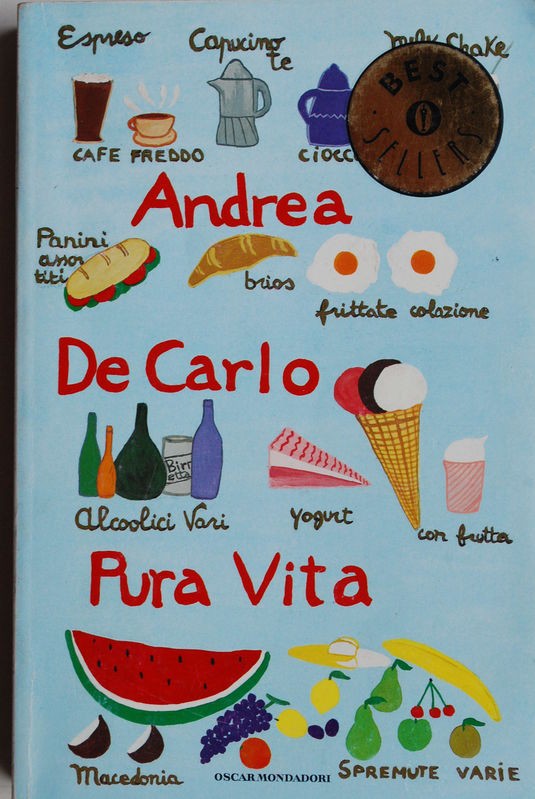 Espreso
Capucino
te
milk Chake
BEST
SELLERS
CAFE FREDDO
Andrea
Panini
assor
titi
brios
frittate colazione
De Carlo
Birr
etta
Alcoolici Vari
yogurt
con frutta
Pura Vita
Macedonia
OSCAR MONDADORI
SPREMUTE VARIE